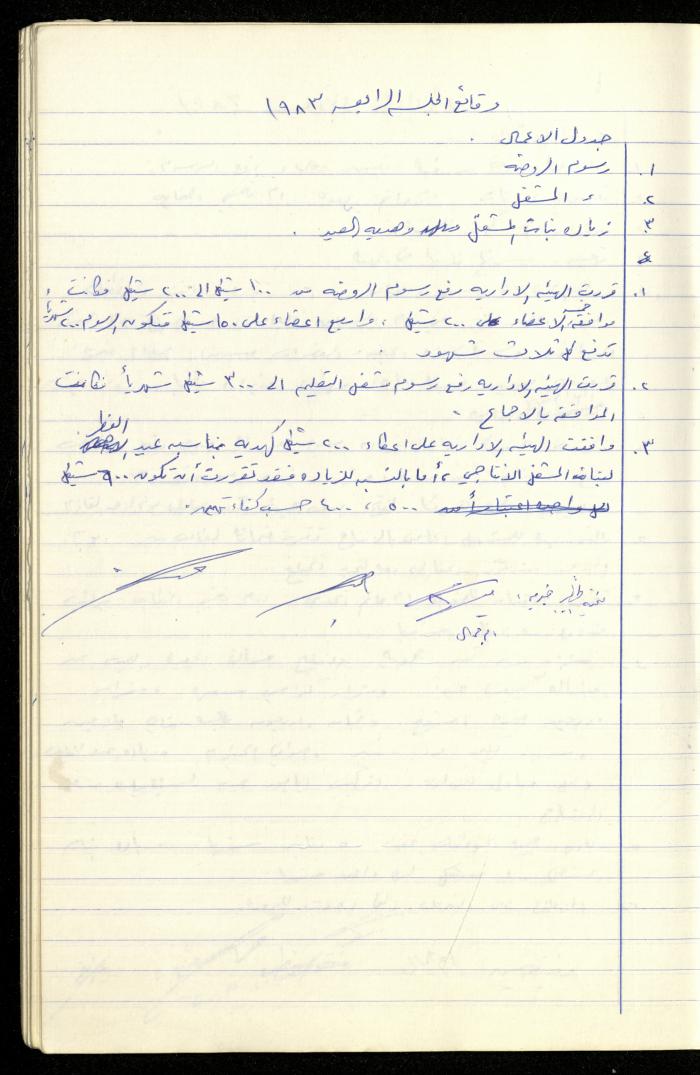 وقائع الجلسة الرابعة ١٩٨٣
جدول الاعمال .
١. رسوم الروضة
٢. " المشغل
٣. زيادة بنات المشغل وهدية العيد .
٤
١. قررت الهيئة الادارية رفع رسوم الروضة من ١٠٠ شيقل الى ٢٠٠ شيقل فكانت
موافقة الاعضاء على ٢٠٠ شيقل ، واربع اعضاء على ١٥٠ شيقل فتكون الرسوم ٢٠٠ شهرياً
تدفع لثلاث شهور .
٢. قررت الهيئة الادارية رفع رسوم مشغل التعليم الى ٣٠٠ شيقل شهرياً فكانت
الموافقة بالاجماع .
٣. وافقت الهيئة الادارية على اعطاء ٢٠٠ شيقل كهدية بمناسبة عيد الفطر
لبنات المشغل الانتاجي ، أما بالنسبة للزيادة فقد تقررت أن تكون ٩٠٠ شيقل
لكل واحدة اعتباراً من ٥٠٠ ، ٤٠٠ حسب كفاءتهن .